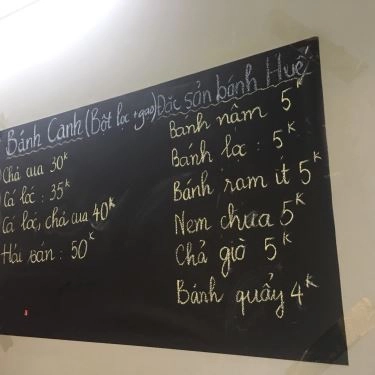 Bánh Canh (Bột lọc + gạo)
Chả cua 30K
Cá lóc : 35K
Cá lóc, chả cua 40K
Hải sản : 50K
Đặc sản bánh Huế
Bánh nậm 5K
Bánh lọc : 5K
Bánh ram ít 5K
Nem chua 5K
Chả giò 5K
Bánh quẩy 4K